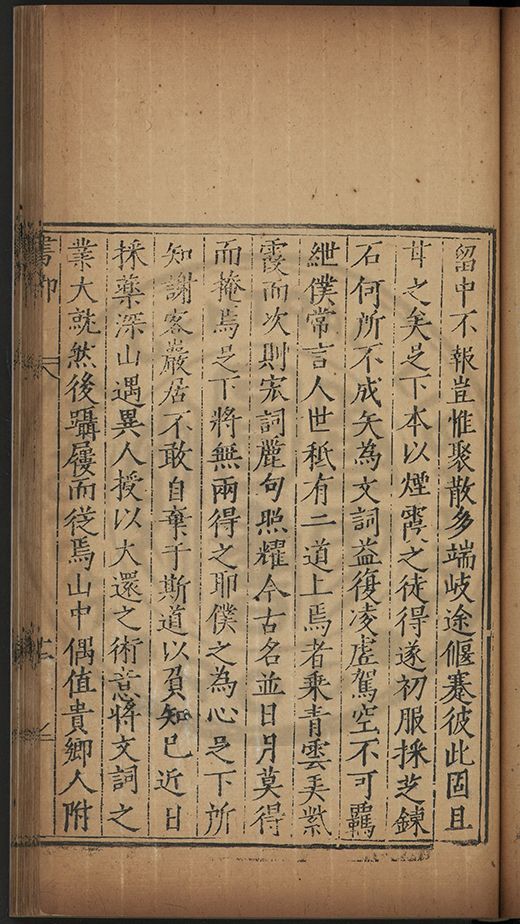 留中不報豈惟聚散多端岐途偃蹇彼此固且
甘之矣足下本以煙霞之徒得遂初服採芝鍊
石何所不成矢為文詞益復凌虛駕空不可羈
紲僕常言人世秪有二道上焉者乘青雲弄紫
霞而次則宏詞麗句照耀今古名並日月莫得
而掩焉足下將無兩得之耶僕之為心足下所
知謝客巖居不敢自棄于斯道以負知已近日
採藥深山遇異人授以大還之術意將文詞之
業大就然後躡屩而從焉山中偶值貴鄉人附